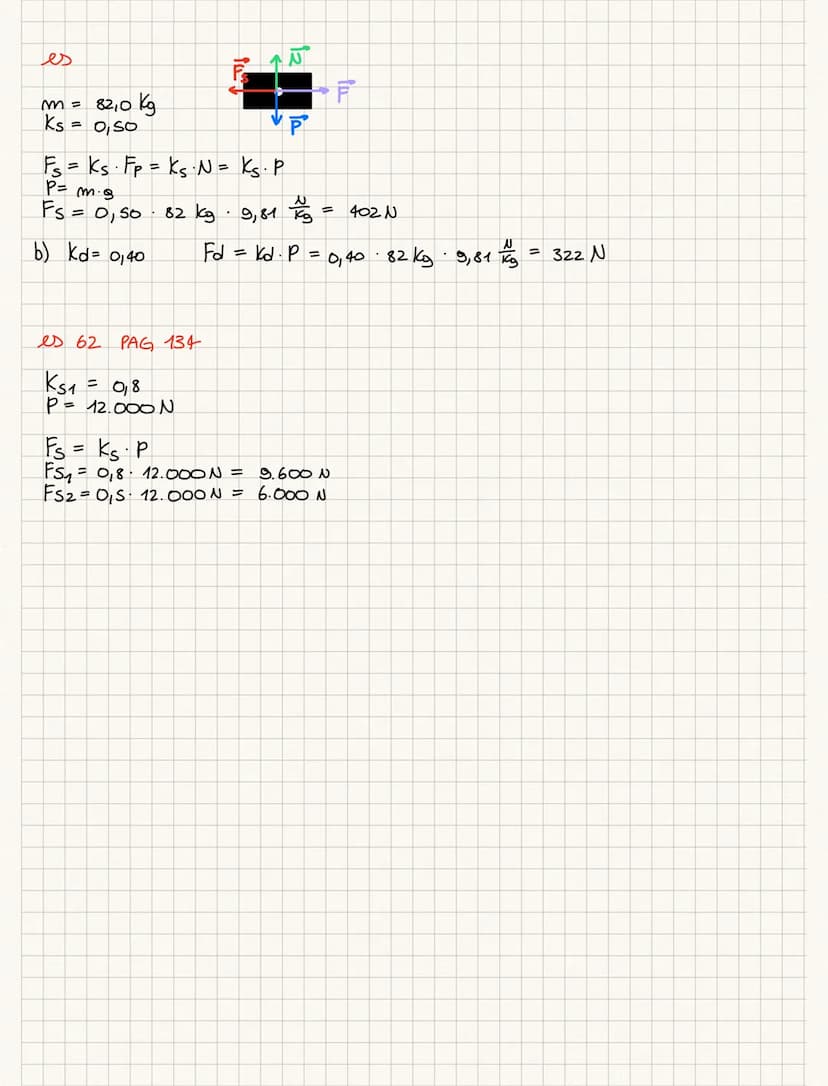 es
F⃗s N⃗ F⃗ P⃗
m = 82,0 Kg
Ks = 0,50
Fs = Ks · Fp = Ks · N = Ks · P
P = m·g
Fs = 0,50 · 82 kg · 9,81 N/Kg = 402 N
b) Kd = 0,40 Fd = Kd · P = 0,40 · 82 Kg · 9,81 N/Kg = 322 N
es 62 PAG 134
Ks1 = 0,8
P = 12.000 N
Fs = Ks · P
Fs1 = 0,8 · 12.000 N = 9.600 N
Fs2 = 0,5 · 12.000 N = 6.000 N